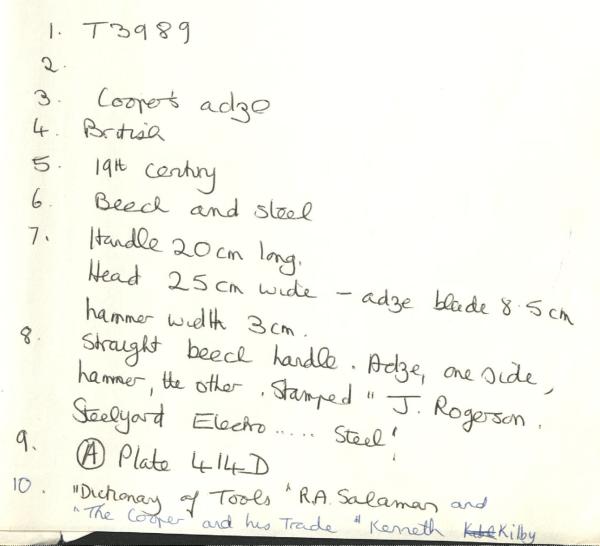 1. T3989
2.
3. Cooper's adze
4. British
5. 19th century
6. Beech and steel
7. Handle 20cm long.
Head 25cm wide – adze blade 8.5cm
hammer width 3cm.
8. Straight beech handle. Adze, one side,
hammer, the other. Stamped " J. Rogerson.
Steelyard Electro..... Steel!
9. (A) Plate 414D
10. "Dictionary of Tools" R.A. Salaman and
"The Cooper and his Trade" Kenneth Kilby